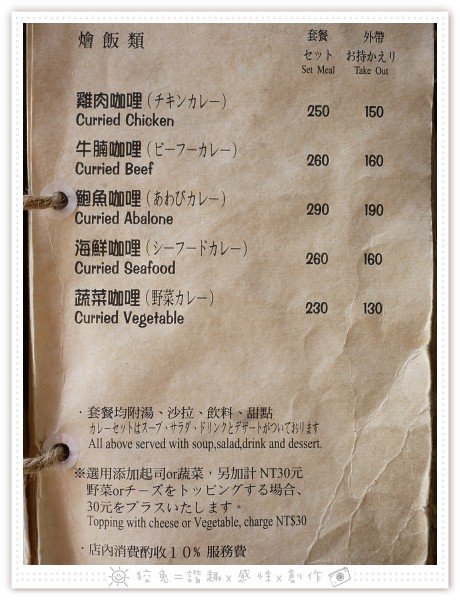 燴飯類
套餐 外帶
セット お持かえリ
Set Meal Take Out
雞肉咖哩(チキンカレー) 250 150
Curried Chicken
牛腩咖哩(ビーフーカレー) 260 160
Curried Beef
鮑魚咖哩(あわびカレー) 290 190
Curried Abalone
海鮮咖哩(シーフードカレー) 260 160
Curried Seafood
蔬菜咖哩(野菜カレー) 230 130
Curried Vegetable
・套餐均附湯、沙拉、飲料、甜點
カレーセットはスープ、サラダ、ドリンクとデザートがついております
All above served with soup,salad,drink and dessert.
※選用添加起司or蔬菜，另加計 NT30元
野菜orチーズをトッピングする場合、
30元をプラスいたします。
Topping with cheese or Vegetable, charge NT$30
・店內消費酌收10% 服務費
狡兔=諧趣x感性x創作